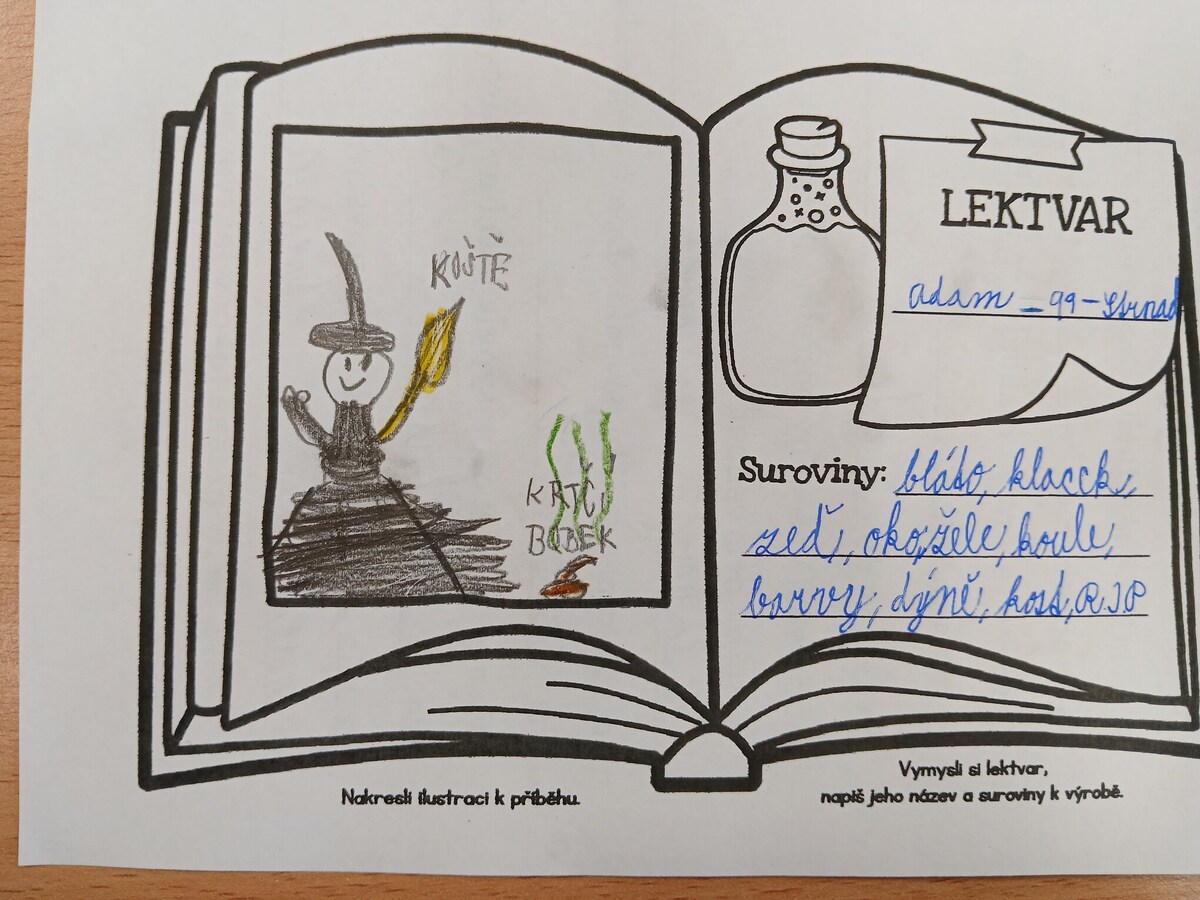 KOŠTĚ
KRTČÍ
BOBEK
Nakresli ilustraci k příběhu.
LEKTVAR
adam_99-Strnad
Suroviny: bláto, klacek,
zeď, oko, žele, koule,
barvy, dýně, kost, R.I.P
Vymysli si lektvar,
napiš jeho název a suroviny k výrobě.